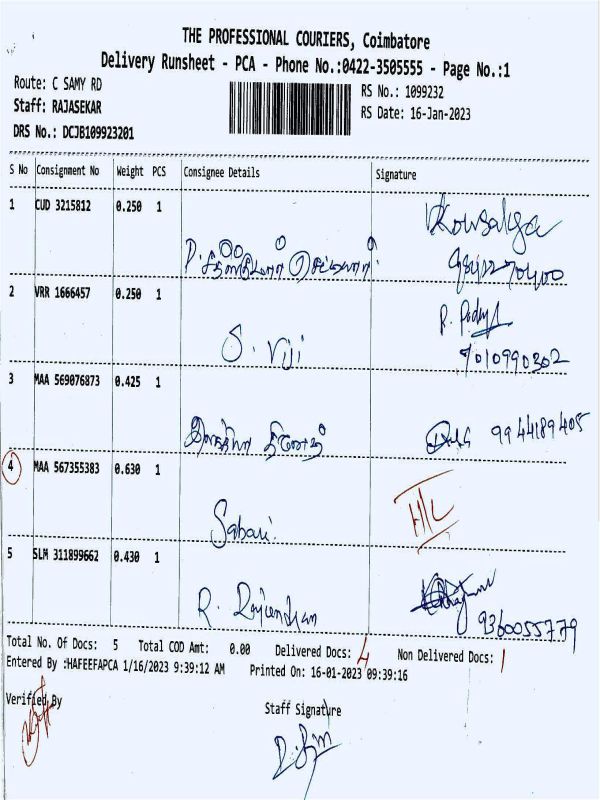 THE PROFESSIONAL COURIERS, Coimbatore
Delivery Runsheet - PCA - Phone No.:0422-3505555 - Page No.:1
Route: C SAMY RD
RS No.: 1099232
Staff: RAJASEKAR
RS Date: 16-Jan-2023
DRS No.: DCJB109923201
S No Consignment No Weight PCS Consignee Details Signature
1 CUD 3215812 0.250 1 Kowsalya
2 VRR 1666457 0.250 1
S. Viji
7010990302
3 MAA 569076873 0.425 1
9944189405
4 MAA 567355383 0.630 1
Sabari
5 SLM 311899662 0.430 1
R. Rajendran
9360055779
Total No. Of Docs: 5 Total COD Amt: 0.00 Delivered Docs: 4 Non Delivered Docs: 1
Entered By :HAFEEFAPCA 1/16/2023 9:39:12 AM Printed On: 16-01-2023 09:39:16
Verified By
Staff Signature